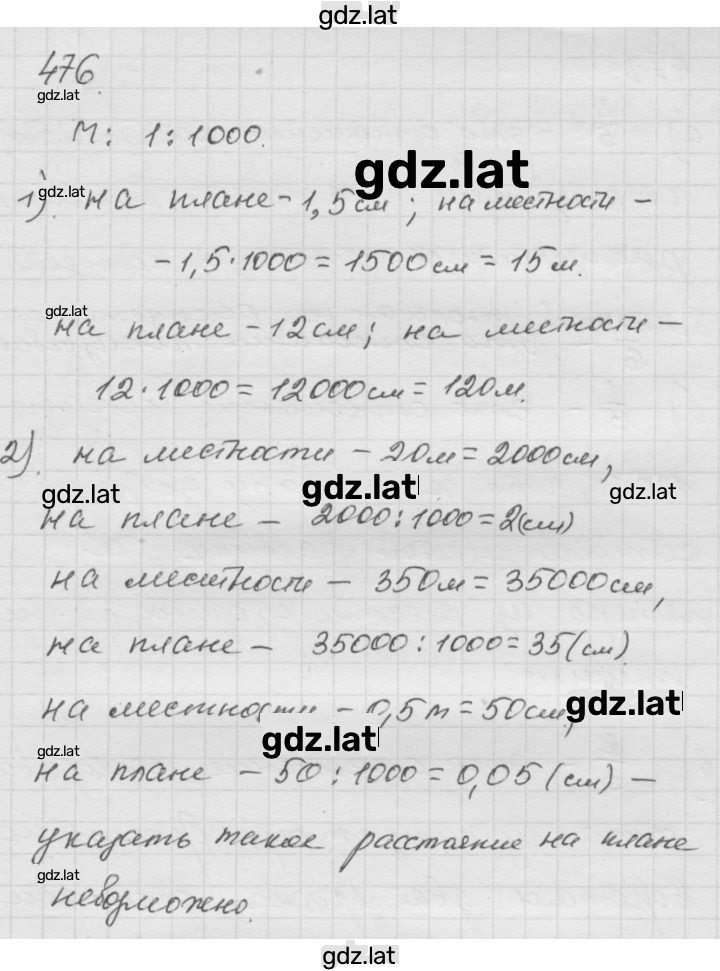 gdz.lat
476
gdz.lat
М: 1:1000.
gdz.lat
gdz.lat
1). на плане - 1,5см; на местности -
- 1,5·1000 = 1500см = 15м.
gdz.lat
на плане - 12см; на местности -
12·1000 = 12000см = 120м.
2). на местности - 20м = 2000см,
gdz.lat gdz.lat gdz.lat
на плане - 2000:1000=2(см)
на местности - 350м = 35000см,
на плане - 35000:1000=35(см)
на местности - 0,5м = 50см,
gdz.lat
gdz.lat
gdz.lat
на плане - 50:1000=0,05(см) -
указать такое расстояние на плане
gdz.lat
невозможно.
gdz.lat